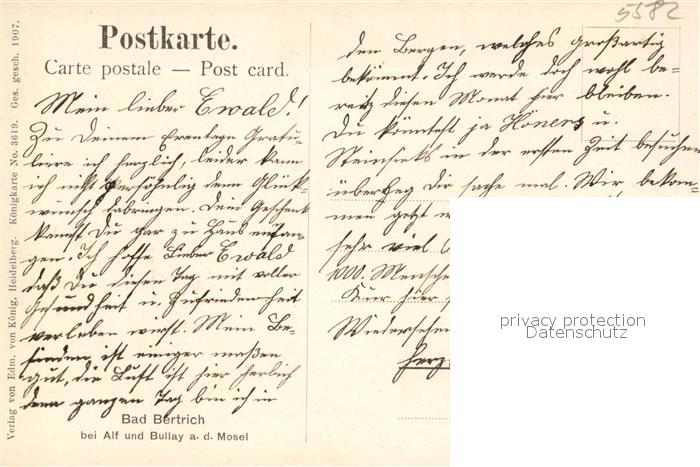 5582
Postkarte.
Carte postale — Post card.
Mein lieber Ewald!
Zu Deinem Erentage Gratu-
liere ich herzlich, leider kann
ich nicht persöhnlig denn Glück-
wunsch dabrungen. Dem Geschenk
kannst Du gar zu Haus emfan-
gen. Ich hoffe Lieber Ewald
daß Du diesen Tag mit voller
Gesundheit u. Zufriedenheit
verleben werst. Mein Be-
finden ist einiger maßen
gut, die Luft ist hier herlich
denn ganzen Tag bin ich in
Bad Bertrich
bei Alf und Bullay a. d. Mosel
Verlag von Edm. von König, Heidelberg. Königkarte No. 3619. Ges. gesch. 1907.
den Bergen, welches großartig
bekommt. Ich werde doch wohl be-
reitz diesen Monat hier bleiben.
Du könntest ja Honens u.
in der ersten Zeit besuchen
überleg Dir sache mal. Wir bekom-
men getzt
sehr viel
1000. Mensche
Kur hier
Wiedersehen
herz
privacy protection
Datenschutz